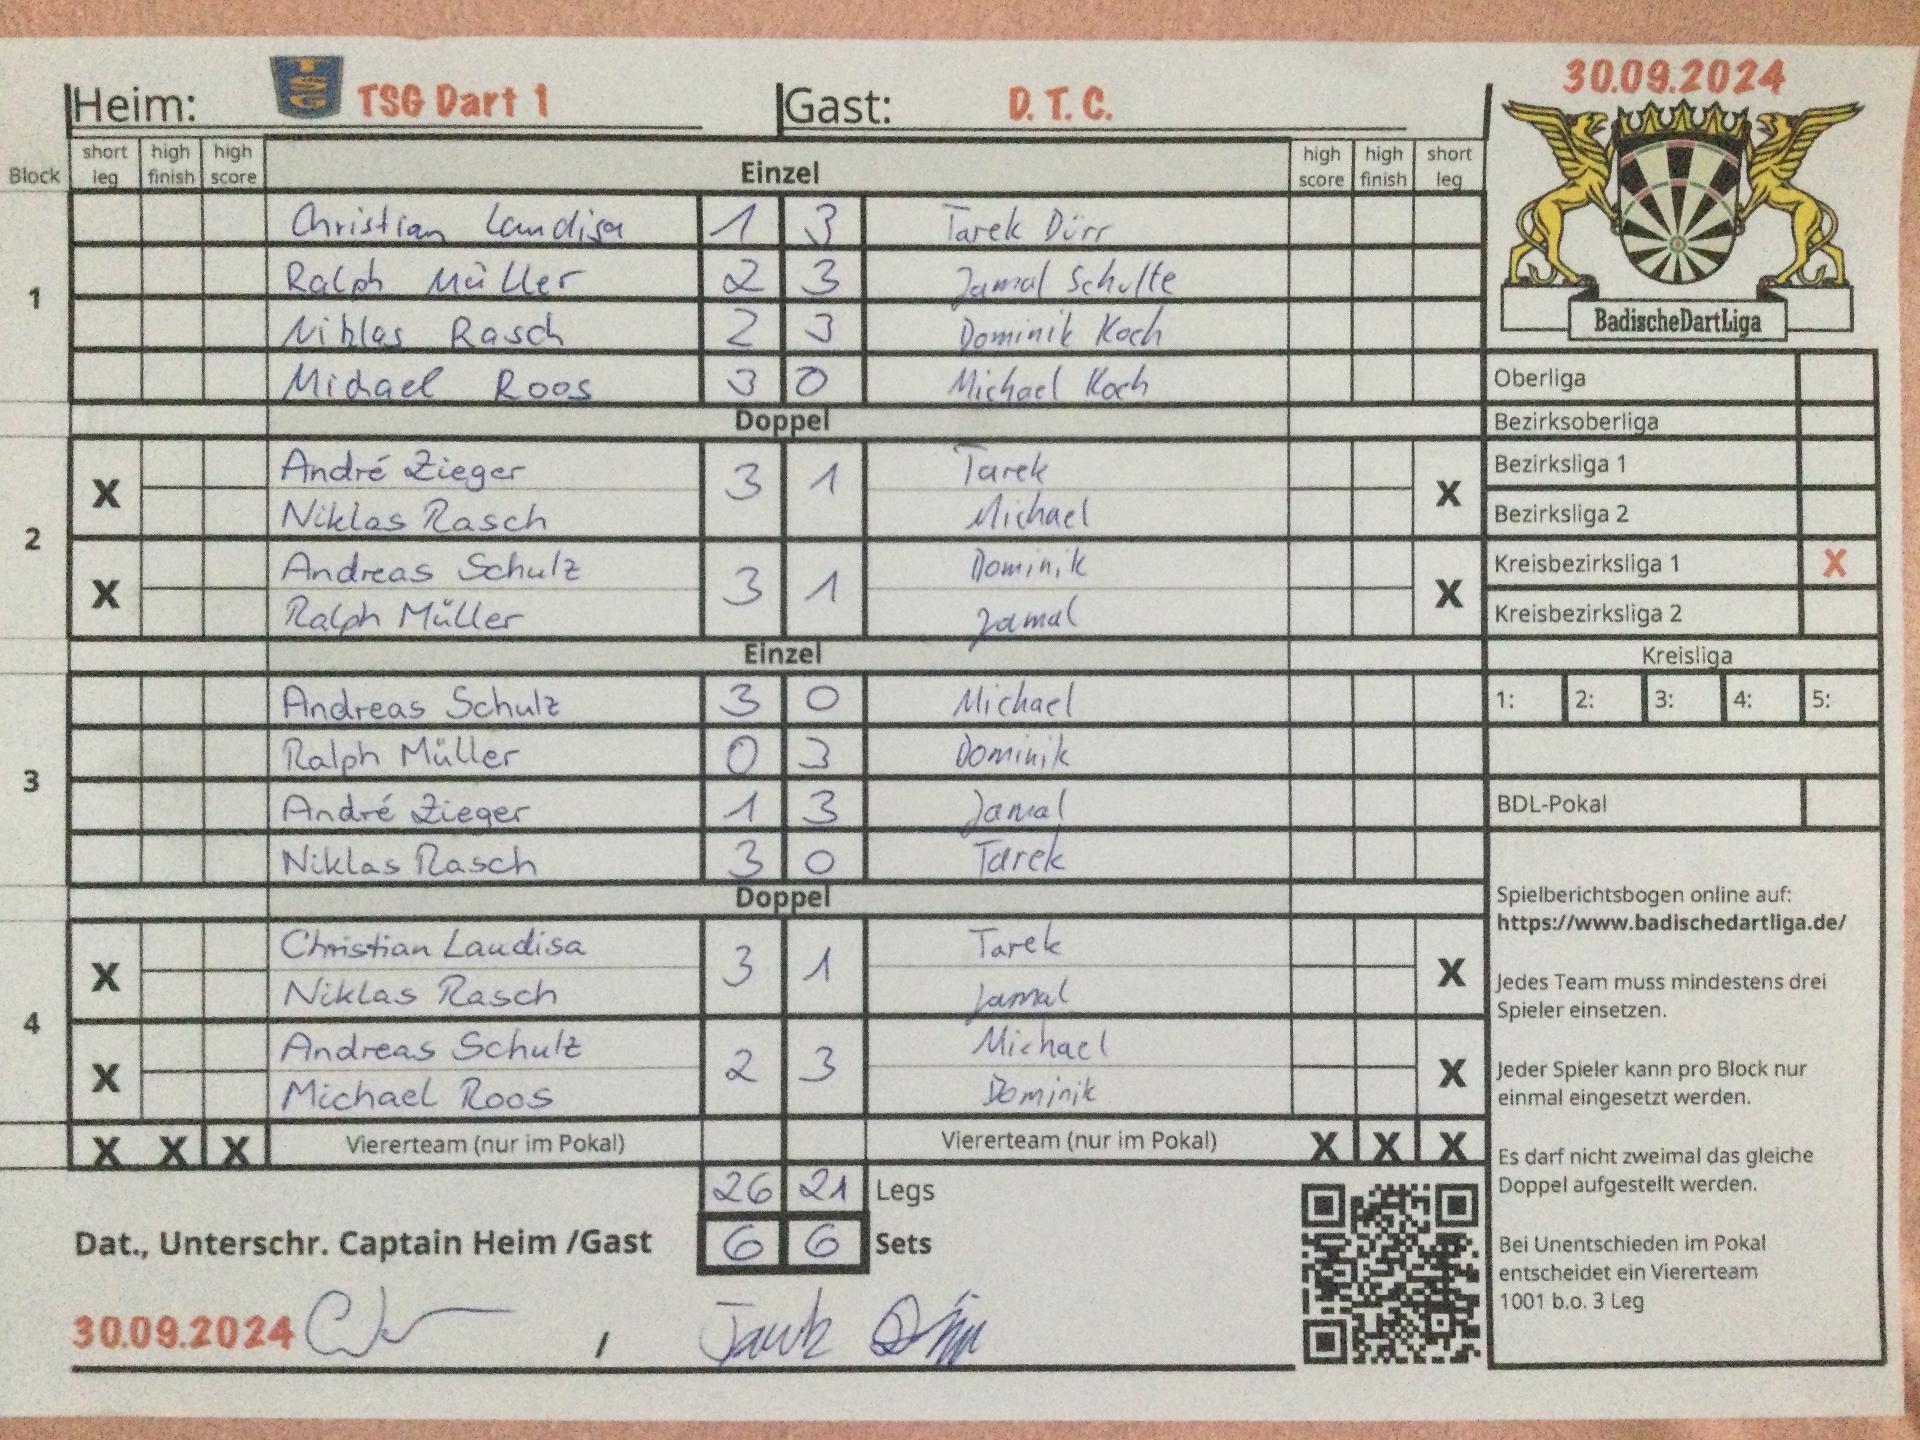 30.09.2024
Heim: TSG Dart 1 Gast: D. T. C.
short leg high finish high score Einzel high score high finish short leg
Block
Christian Laudisa 1 3 Tarek Dürr
1 Ralph Müller 2 3 Jamal Schulte
Niklas Rasch 2 3 Dominik Koch
Michael Roos 3 0 Michael Koch
Doppel
X André Zieger 3 1 Tarek X
Niklas Rasch Michael
2
X Andreas Schulz 3 1 Dominik X
Ralph Müller Jamal
Einzel
Andreas Schulz 3 0 Michael
Ralph Müller 0 3 Dominik
3
André Zieger 1 3 Jamal
Niklas Rasch 3 0 Tarek
Doppel
X Christian Laudisa 3 1 Tarek X
Niklas Rasch Jamal
4
X Andreas Schulz 2 3 Michael X
Michael Roos Dominik
X X X Viererteam (nur im Pokal) Viererteam (nur im Pokal) X X X
26 21 Legs
Dat., Unterschr. Captain Heim /Gast 6 6 Sets
30.09.2024 ,
BadischeDartLiga
Oberliga
Bezirksoberliga
Bezirksliga 1
Bezirksliga 2
Kreisbezirksliga 1 X
Kreisbezirksliga 2
Kreisliga
1: 2: 3: 4: 5:
BDL-Pokal
Spielberichtsbogen online auf:
https://www.badischedartliga.de/
Jedes Team muss mindestens drei
Spieler einsetzen.
Jeder Spieler kann pro Block nur
einmal eingesetzt werden.
Es darf nicht zweimal das gleiche
Doppel aufgestellt werden.
Bei Unentschieden im Pokal
entscheidet ein Viererteam
1001 b.o. 3 Leg